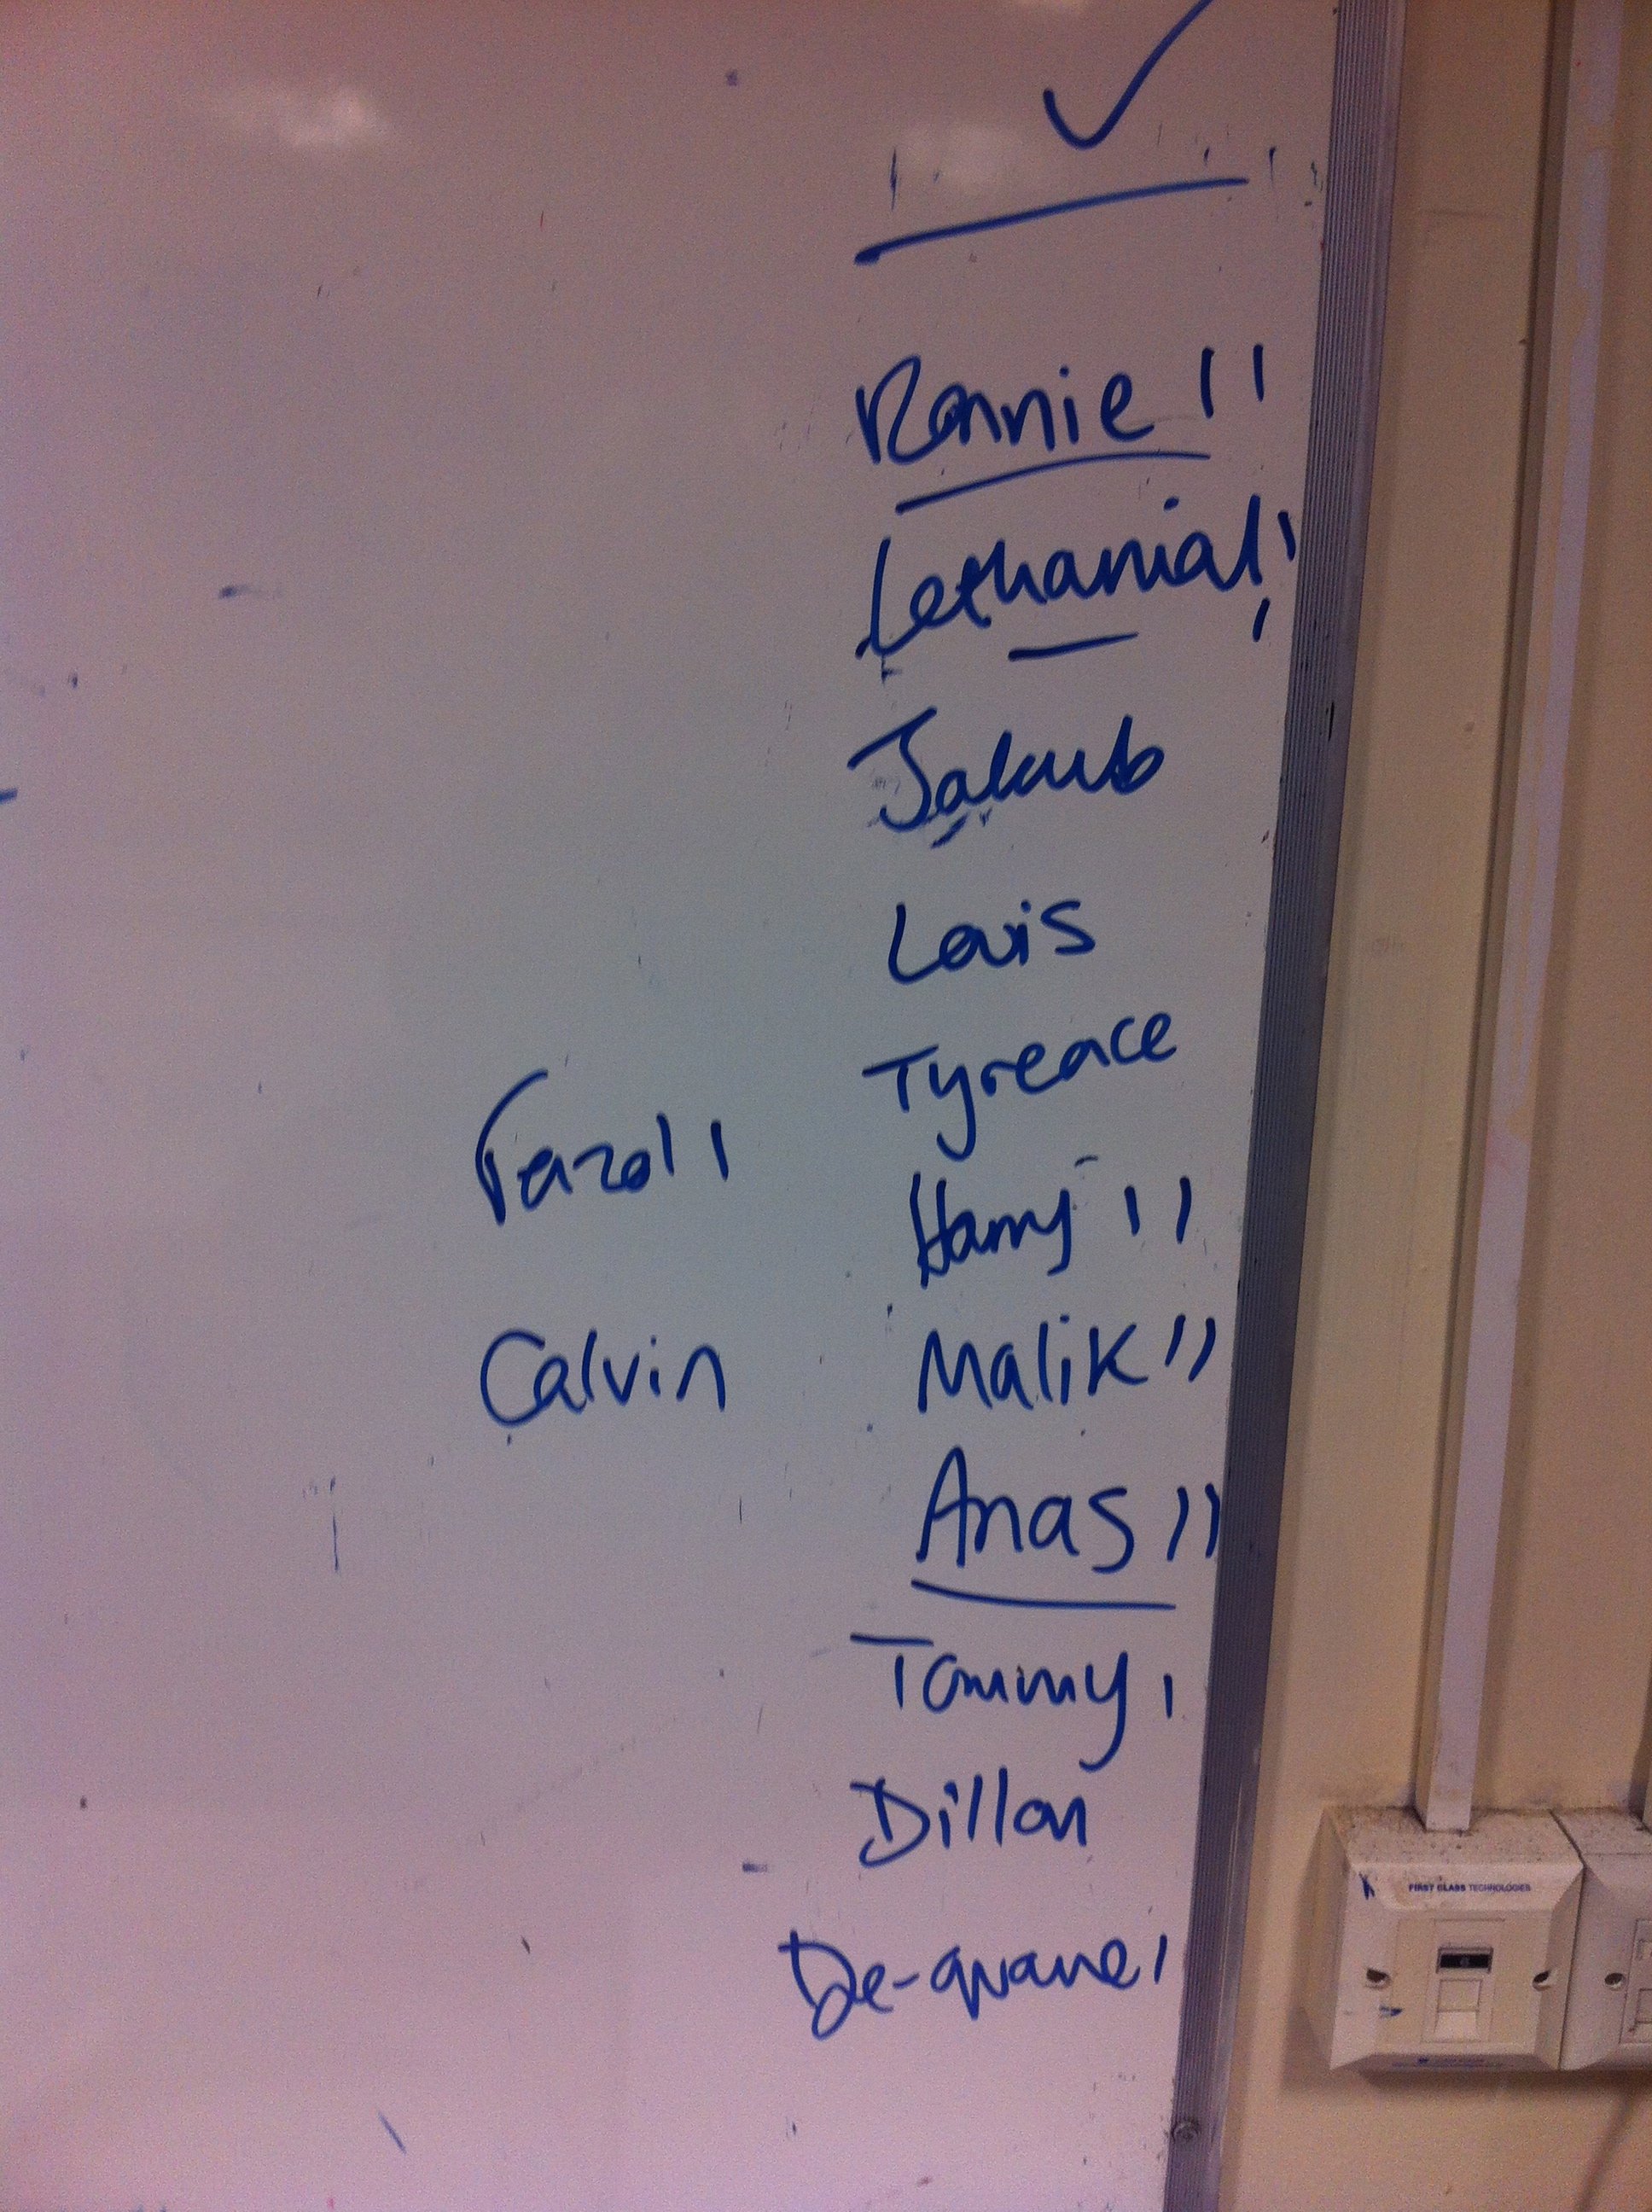 ✓
Ronnie ||
Lethanial ||
Jakub
Louis
Tyreace
Fazol |
Harry ||
Calvin
Malik ||
Anas ||
Tommy |
Dillon
De-quane |
FIRST CLASS TECHNOLOGIES